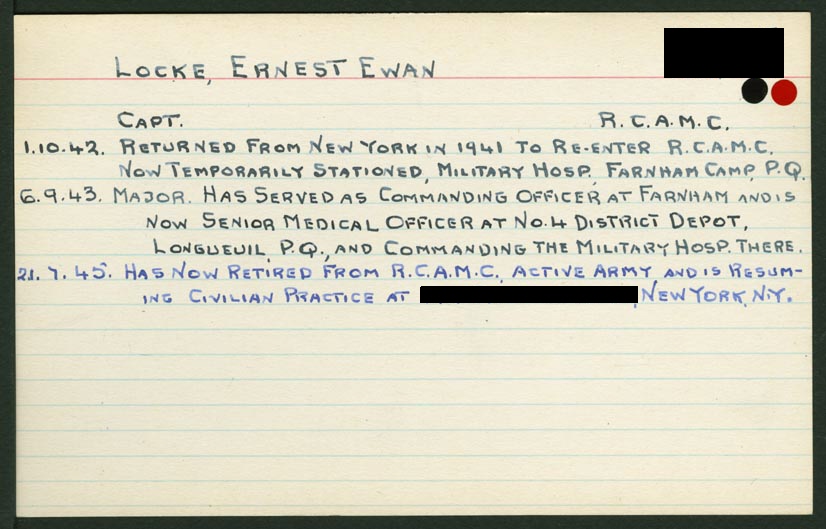 LOCKE, ERNEST EWAN
CAPT. R.C.A.M.C.
1.10.42. RETURNED FROM NEW YORK IN 1941 TO RE-ENTER R.C.A.M.C.
NOW TEMPORARILY STATIONED, MILITARY HOSP. FARNHAM CAMP, P.Q.
6.9.43. MAJOR. HAS SERVED AS COMMANDING OFFICER AT FARNHAM AND IS
NOW SENIOR MEDICAL OFFICER AT NO.4 DISTRICT DEPOT,
LONGUEUIL, P.Q., AND COMMANDING THE MILITARY HOSP. THERE.
21.7.45. HAS NOW RETIRED FROM R.C.A.M.C. ACTIVE ARMY AND IS RESUM-
ING CIVILIAN PRACTICE AT NEW YORK, N.Y.